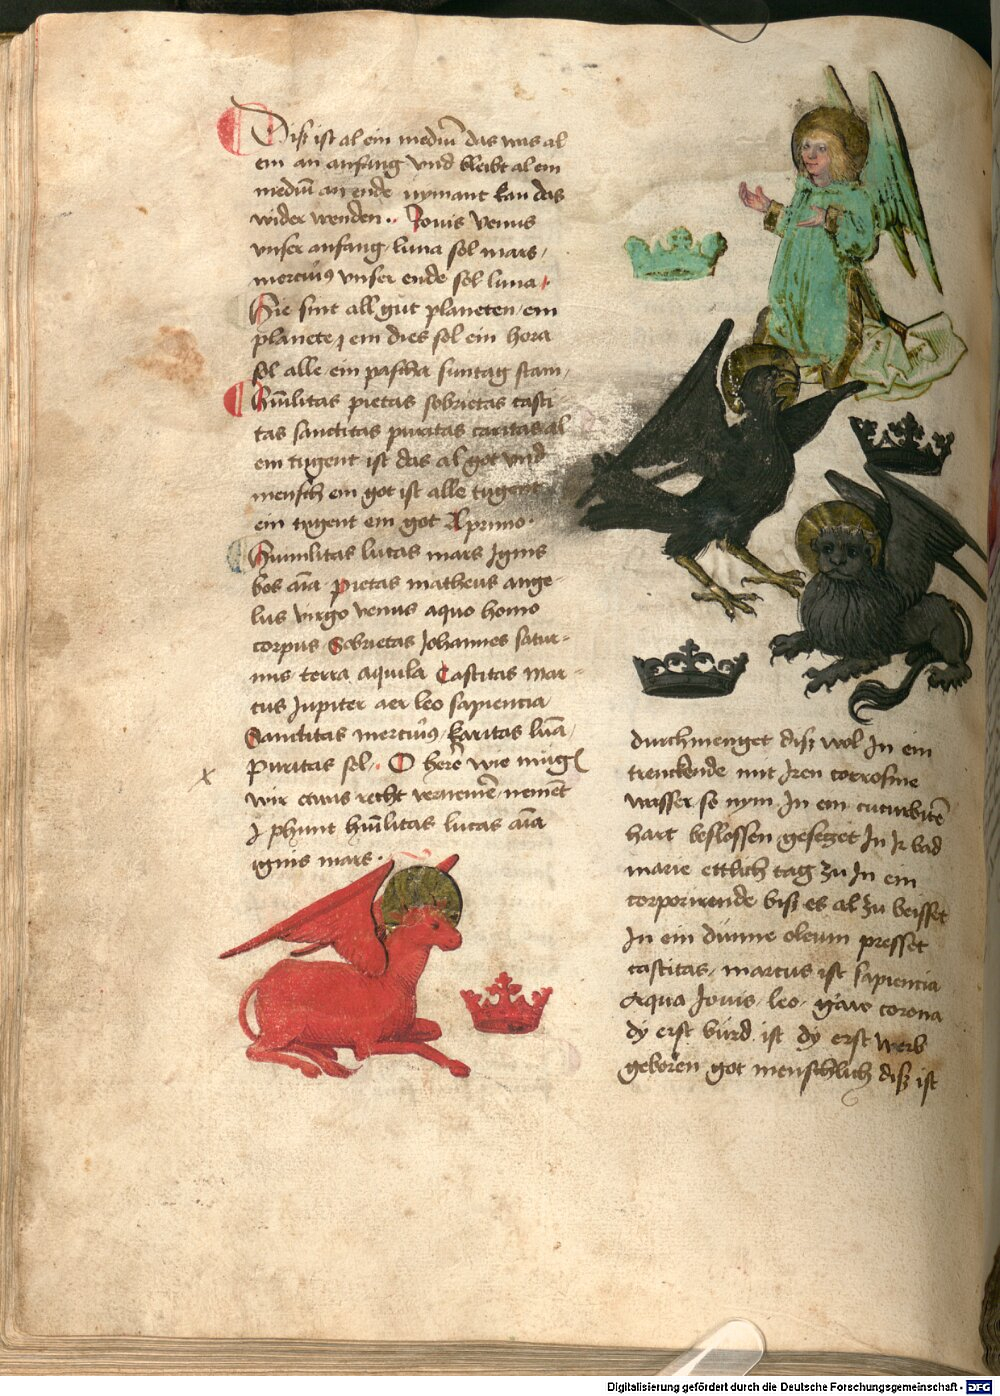 Disz ist al ein mediu̅ das was al
ein an anfang vnd bleibt al ein
mediu̅ an ende nymant kan das
wider wenden .. Jouis venus
vnser anfang luna sol mars
mercuri9 vnser ende sol luna
Hie sint all gut planeten ein
planete j ein dies sol ein hora
sol alle ein pascha suntag stam
Hu̅ilitas pietas sobrietas casti
tas sanctitas puritas caritas al
ein tugent ist das al got vnd
mensch ein got ist alle tugent
ein tugent ein got A primo .
Humilitas lucas mars Ignis
bos aı̅a pietas matheus ange-
lus virgo venus aqua homo
corpus Sobrietas Johannes satur-
nus terra aquila Castitas mar-
cus Jupiter aer leo sapiencia
Sanctitas mercuri9 karitas lu̅a
puritas sol . O here wie mug
wir etwas recht verneme̅ nemet
j phunt hu̅ilitas lucas aı̅a
ignis mars .
durchmenget disz wol Jn ein
trenckende mit Jren corrosiue
wasser so nym Jn ein cucurbite̅
hart beslossen geseget Jn Jr bad
marie ettlich tag zu Jn ein
corporirende bisz es al zu beisset
Jn ein dunne oleum presset
castitas marcus ist sapiencia
Aqua Jouis leo corona
dy erst burd ist dy erst werb
geboren got menschlich disz ist
Digitalisierung gefördert durch die Deutsche Forschungsgemeinschaft - DFG